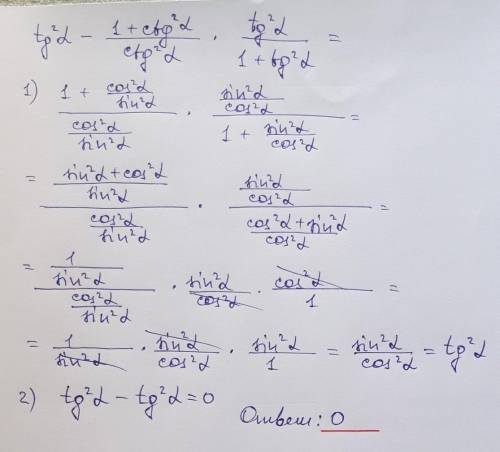 tg²α − (1 + ctg²α)/(ctg²α) · (tg²α)/(1 + tg²α) =
1) (1 + cos²α/sin²α)/(cos²α/sin²α) · (sin²α/cos²α)/(1 + sin²α/cos²α) =
= ((sin²α + cos²α)/sin²α)/(cos²α/sin²α) · (sin²α/cos²α)/((cos²α + sin²α)/cos²α) =
= (1/sin²α)/(cos²α/sin²α) · sin²α/cos²α · cos²α/1 =
= 1/sin²α · sin²α/cos²α · sin²α/1 = sin²α/cos²α = tg²α
2) tg²α − tg²α = 0
Ответ: 0